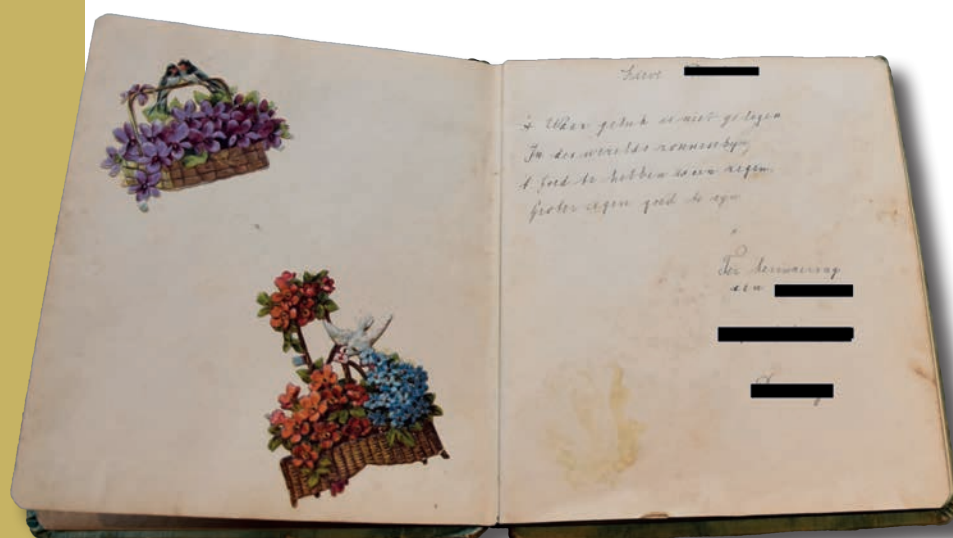 Lieve
't Waar geluk is niet gelegen
In des werelds zonneschyn
't Goed te hebben is een zegen,
Groter zegen goed te zyn
Ter herinnering
aan